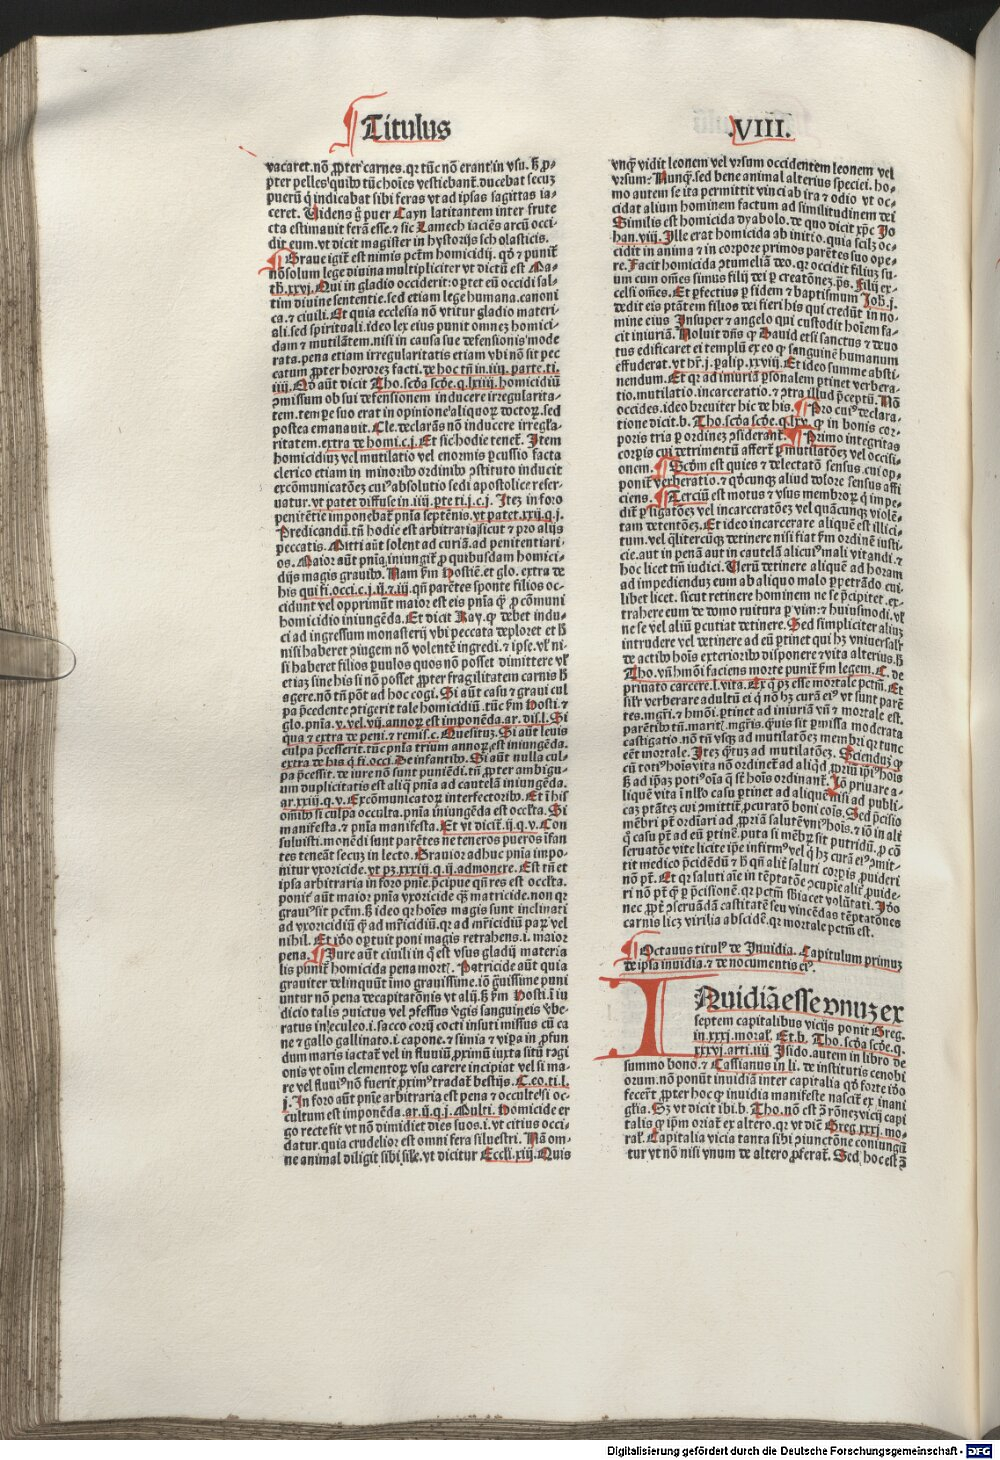 Titulus
.VIII.
vacaret.nõ ꝓpter carnes.qꝛ tũc nõ erant in vsu. ꝫ ꝓ-
pter pelles quibꝰ tũc hoīes vestiebant̃.ducebat secuȝ
puerũ q̃ indicabat sibi feras vt ad ipsas sagittas ia-
ceret. Uidens g̃ puer Cayn latitantem inter frute
cta estimauit ferã esse.⁊ sic Lamech iaciẽs arcũ occi-
dit eum.vt dicit magister in hystorijs scholasticis.
Graue igit̃ est nimis pctm̃ homicidij. qd̃ ⁊ punit̃
nõsolum lege diuina multipliciter vt dictũ est Ma-
th̃.xxvj. Qui in gladio occiderit: oportet eũ occidi sal-
tim diuine sententie.sed etiam lege humana.canoni
ca.⁊ ciuili. Et quia ecclesia nõ vtitur gladio materi-
ali.sed spirituali.ideo lex eius punit omneȝ homici-
dam ⁊ mutilãtem.nisi in causa sue defensionis mode
rata.pena etiam irregularitatis etiam vbi nõ sit pec
catum ꝓpter horroreȝ facti. de hoc tñ in.iiij. parte.ti.
iiij. Qd̃ aũt dicit Tho.scd̃a scd̃e.q.lxiiij. homicidiũ
ꝯmissum ob sui defensionem inducere irregularita-
tem.tempe suo erat in opinione aliquoꝝ doctoꝝ.sed
postea emanauit. Cle.declarãs nõ inducere irregla-
ritatem.extra de homi.c.j. Et sic hodie tenet̃. Item
homicidiuȝ vel mutilatio vel enormis pcussio facta
clerico etiam in minoribꝰ ordinibꝰ ꝯstituto inducit
excõmunicatõeȝ cuiꝰ absolutio sedi apostolice reser-
uatur.vt patet diffuse in.iiij.pte.ti.j.c.j. Iteȝ in foro
penitẽtie imponebat̃ pñia septẽnis.vt patet.xxij.q.j.
Predicandũ.tñ hodie est arbitraria sicut ⁊ pro alijs
peccatis. Mitti aũt solent ad curiã.ad penitentiari-
os. Maior aũt pñia iniungit̃ ꝓ quibusdam homici-
dijs magis grauibꝰ. Nam ẜm Hostiẽ.et glo. extra de
his qui fi.occi.c.j.ij.⁊.iij.qñ parẽtes sponte filios oc-
cidunt vel opprimũt maior est eis pñia q̃ ꝓ cõmuni
homicidio iniungẽda. Et dicit Ray. qp debet indu-
ci ad ingressum monasterij vbi peccata deploret et ꝫ
nisi haberet ꝯiugem nõ volentẽ ingredi.⁊ ipse.vl̃ ni-
si haberet filios paruulos quos nõ posset dimittere vl̃
etiaȝ sine his si nõ posset ꝓpter fragilitatem carnis ꝫ
agere.nõ tñ põt ad hoc cogi. Si aũt casu ⁊ graui cul
pa p̃cedente ꝯtigerit tale homicidiũ.tũc ẜm Hosti.⁊
glo.pñia.v.vel.vij.annoꝝ est imponẽda.ar.dis.l. Si
qua ⁊ extra de peni.⁊ remis.c. Quesituȝ. Si aũt leuis
culpa p̃cesserit.tũc pñia trium annoꝝ est iniungẽda.
extra de his q̃ fi.occi. De infantibꝰ. Si aũt nulla cul-
pa p̃cessit.de iure nõ sunt puniẽdi.tñ ꝓpter ambigu-
um duplicitatis est aliq̃ pñia ad cautelã iniungẽda.
ar.xxiij.q.v. Excõmunicatoꝝ interfectoribꝰ. Et ĩ his
om̃ibꝰ si culpa occulta.pñia iniungẽda est occlta. Si
manifesta.⁊ pñia manifesta. Et vt dicit̃.ij.q.v. Con
suluisti.monẽdi sunt parẽtes ne teneros pueros ĩfan
tes teneãt secuȝ in lecto. Grauior adhuc pñia impo-
nitur vxoricide.vt pȝ.xxxiij.q.ij.admonere. Est tñ et
ipsa arbitraria in foro pnĩe.p̃cipue qñ res est occlta.
ponit̃ aũt maior pñia vxoricide q̃ȝ matricide.non qꝛ
grauiꝰ sit pctm̃. ꝫ ideo qꝛ hoīes magis sunt inclinati
ad vxoricidiũ q̃ ad mr̃icidiũ.qꝛ ad mr̃icidiũ paꝝ vel
nihil. Et iõo optuit poni magis retrahens.i. maior
pena. Iure aũt ciuili in q̃ est vsus gladij materia
lis punit̃ homicida pena mort̃. Patricide aũt quia
grauiter delinquũt ĩmo grauissime.iõ g̃uissime puni
untur nõn pena decapitatõnis vt alij. ꝫ ẜm Hosti.ĩ iu
dicio talis ꝯuictus vel ꝯfessus v̓gis sanguineis v̓be-
ratus in culeo.i.sacco corij cocti insuti missus cũ ca
ne ⁊ gallo gallinato.i.capone.⁊ simia ⁊ vip̃a in ꝓfun
dum maris iactat̃ vel in fluuiũ ꝓximũ iuxta sitũ r̃agi
onis vt oĩm elementoꝝ vsu carere incipiat vel si ma-
re vel fluuiꝰ nõ fuerit ꝓximꝰ tradat̃ bestijs. C.eo.ti.l.
j. In foro aũt pnĩe arbitraria est pena ⁊ occulte si oc-
cultum est imponẽda.ar.ij.q.j. Multi. Homicide er
go recte fit vt nõ dimidiet dies suos.i.vt citius occi-
datur.quia crudelior est omni fera siluestri. Nã om-
ne animal diligit sibi sil̃e.vt dicitur Eccl̃i.xiij. Quis
vnq̃ vidit leonem vel vrsum occidentem leonem vel
vrsum: Nunq̃.sed bene animal alterius speciei. ho-
mo autem se ita permittit vinci ab ira ⁊ odio vt oc-
cidat alium hominem factum ad similitudinem dei
Similis est homicida dyabolo. de quo dicit xp̃c Jo
han.viij. Ille erat homicida ab initio.quia scilȝ oc-
cidit in anima ⁊ in corpore primos parẽtes suo ope-
re. Facit homicida ꝯtumeliã deo.qꝛ occidit filiuȝ su-
um cum om̃es simus filij dei p creatõneȝ.ps̃. Filij ex-
celsi om̃es. Et pfectius p fidem ⁊ baptismum Joh̃.j.
Dedit eis ptãtem filios dei fieri his qui credũt in no-
mine eius Insuper ⁊ angelo qui custodit hoĩem fa-
cit iniuriã. Noluit dñs qp Dauid etsi sanctus ⁊ deuo
tus edificaret ei templũ ex eo qp sanguinẽ humanum
effuderat.vt hr̃.j.palip.xxviij. Et ideo summe absti-
nendum. Et qꝛ ad iniuriã psonalem ptinet verbera-
tio.mutilatio.incarceratio.⁊ ꝯtra illud p̃ceptũ. Nõ
occides.ideo breuiter hic de his. Pro cuiꝰ declara-
tione dicit.b. Tho.scd̃a scd̃e.q.lxv. qp in bonis cor-
poris tria p ordineȝ ꝯsiderant̃. Primo integritas
corpis cui detrimentũ affert̃ p mutilatõeȝ vel occisi-
onem. Scd̃m est quies ⁊ delectatõ sensus.cui op-
ponit̃ verberatio.⁊ qd̃cunqȝ aliud dolore sensus affi
ciens. Terciũ est motus ⁊ vsus membroꝝ q̃ impe-
dit̃ p ligatõeȝ vel incarceratõeȝ vel quãcunqȝ violẽ-
tam detentõeȝ. Et ideo incarcerare aliquẽ est illici-
tum.vel q̃litercũqȝ detinere nisi fiat ẜm ordinẽ iusti-
cie.aut in penã aut in cautelã alicuiꝰ mali vitandi.⁊
hoc licet tm̃ iudici. Uerũ detinere aliquẽ ad horam
ad impedienduȝ eum ab aliquo malo ppetrãdo cui-
libet licet.sicut retinere hominem ne se p̃cipitet.ex-
trahere eum de domo ruitura p vim:⁊ huiusmodi.vl̃
ne se vel aliũ pcutiat detinere. Sed simpliciter aliuȝ
intrudere vel detinere ad eũ ptinet qui hȝ vniuersalr̃
de actibꝰ hoĩs exterioribꝰ disponere ⁊ vita alterius.ꝫ
Tho.vñ hmõi faciens morte punit̃ ẜm legem. C. de
priuato carcere.l.vita. Ex q̃ pȝ esse mortale pctm̃. Et
silr̃ verberare adultũ ei q̃ nõ hȝ curã eiꝰ vt sunt parẽ
tes.mgr̃i.⁊ hmõi.ptinet ad iniuriã vñ ⁊ mortale est.
parẽtibꝰ tñ.marit̃.mgr̃is.q̃uis sit pmissa moderata
castigatio.nõ tñ vsqȝ ad mutilatõeȝ membri qꝛ tunc
eẽt mortale. Iteȝ q̃tuȝ ad mutilatõeȝ. Sciendũȝ qp
cũ totiꝰ hoĩs vita nõ ordinet̃ ad aliqd̃ ꝓpriũ ip̃iꝰ hoĩs
ꝫ ad ip̃aȝ potiꝰ oĩa q̃ st̃ hoĩs ordinant̃. Iõ priuare a-
liquẽ vita ĩ nl̃lo casu ptinet ad aliquẽ nisi ad publi-
caȝ ptãteȝ cui ꝯmittit̃ ꝓcuratõ boni cõis. Sed p̃cisio
mẽbri pt̃ ordĩari ad ꝓpriã salutẽ vniꝰ hoĩs.⁊ iõ in ali
q̃ casu pt̃ ad eũ ptinẽ.puta si mẽbꝝ sit putridũ.ꝓ cõ
seruatõe vite licite ip̃e infirmꝰ vel q̃ hȝ curã eiꝰ ꝯmit-
tit medico p̃cidẽdũ ⁊ ꝫ qñ alit̃ saluti corpis ꝓuideri
nõ pt̃. Et qꝛ saluti aĩe in tẽptatõe ꝯcupĩe alit̃ ꝓuide-
ri nõ pt̃ q̃ p p̃cisionẽ.qꝛ pctm̃ sb̃iacet volũtati. Iõo
nec ꝓpt̃ ꝯseruãdã castitatẽ seu vincẽdas tẽptatões
carnis liceȝ virilia abscidẽ.qꝛ mortale pctm̃ est.
Octauus titulꝰ de Inuidia. Capitulum primuȝ
de ipsa inuidia.⁊ de nocumentis eiꝰ.
INuidiã esse vnuȝ ex
septem capitalibus vicijs ponit Greg.
in.xxxj.moral̃. Et.b. Tho.scd̃a scd̃e.q.
xxxvj.arti.iiij Isido.autem in libro de
summo bono.⁊ Cassianus in li. de institutis cenobi
orum.nõ ponũt inuidiã inter capitalia qd̃ forte iõo
fecert̃ ꝓpter hoc qp inuidia manifeste nascit̃ ex inani
gl̃ia. Sȝ vt dicit ibi.b. Tho.nõ est ꝯ rõneȝ vicij capi
talis qp ip̃m oriat̃ ex altero.qꝛ vt diẽ Greg.xxxj.mo-
ral̃. Capitalia vicia tanta sibi ꝯiunctõne coniungũt̃
tur vt nõ nisi vnum de altero ꝓferat̃. Sed hoc est ꝯ
Digitalisierung gefördert durch die Deutsche Forschungsgemeinschaft - DFG